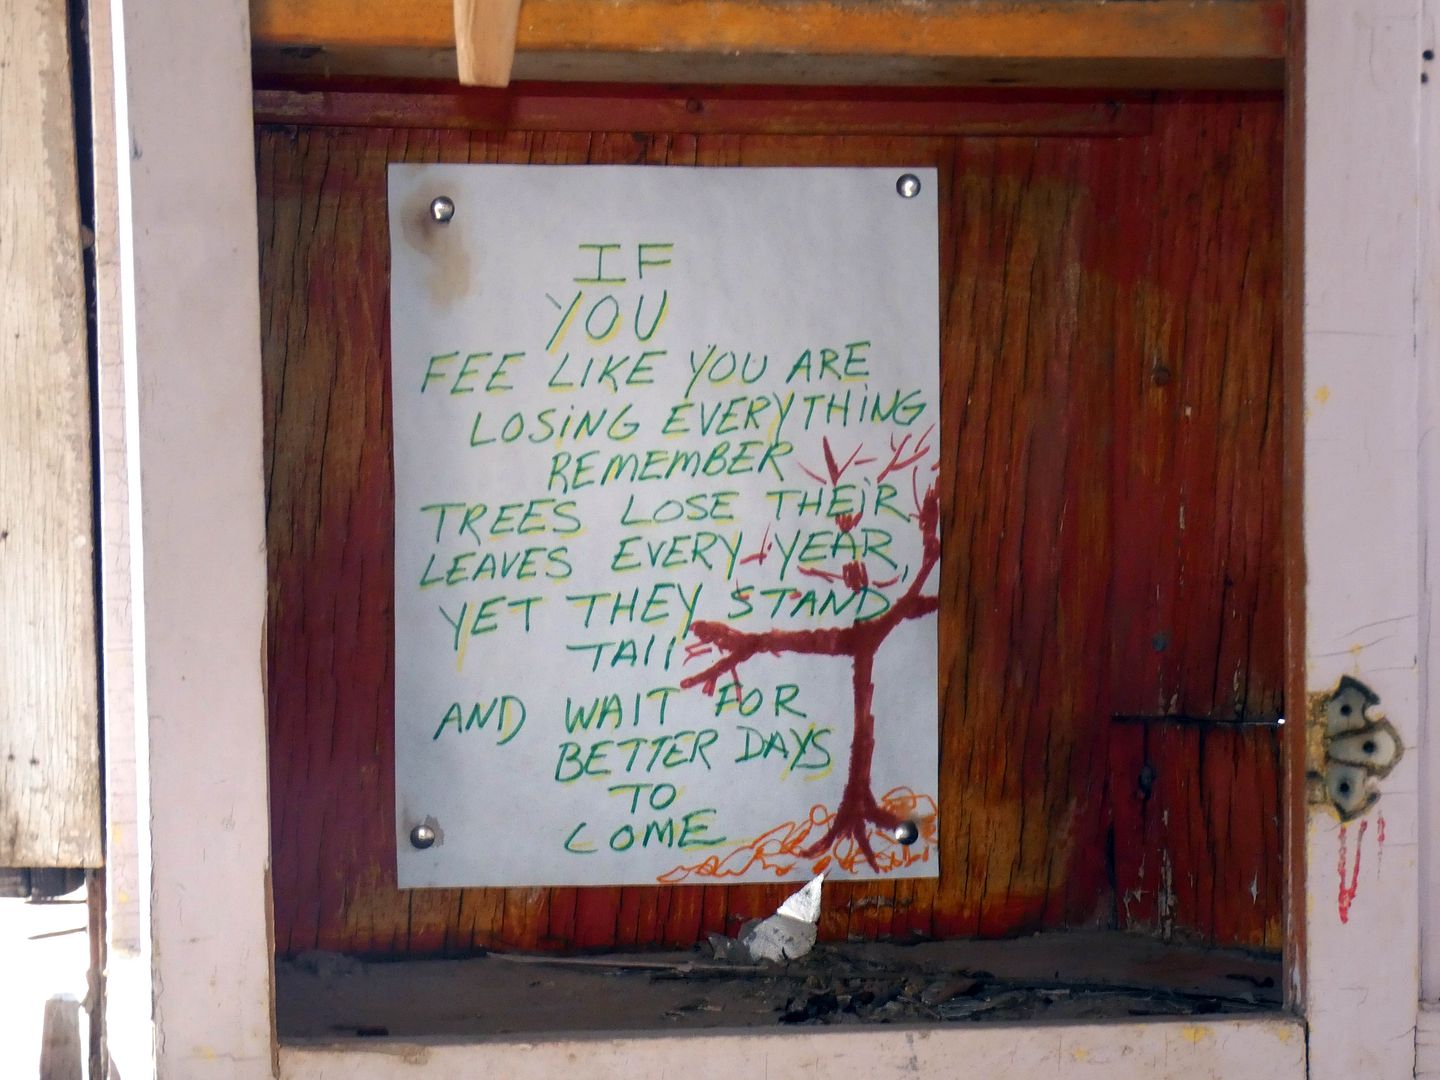 IF
YOU
FEE LIKE YOU ARE
LOSiNG EVERYTHiNG
REMEMBER
TREES LOSE THEiR
LEAVES EVERY YEAR,
YET THEY STAND
TAll
AND WAIT FOR
BETTER DAYS
TO
COME